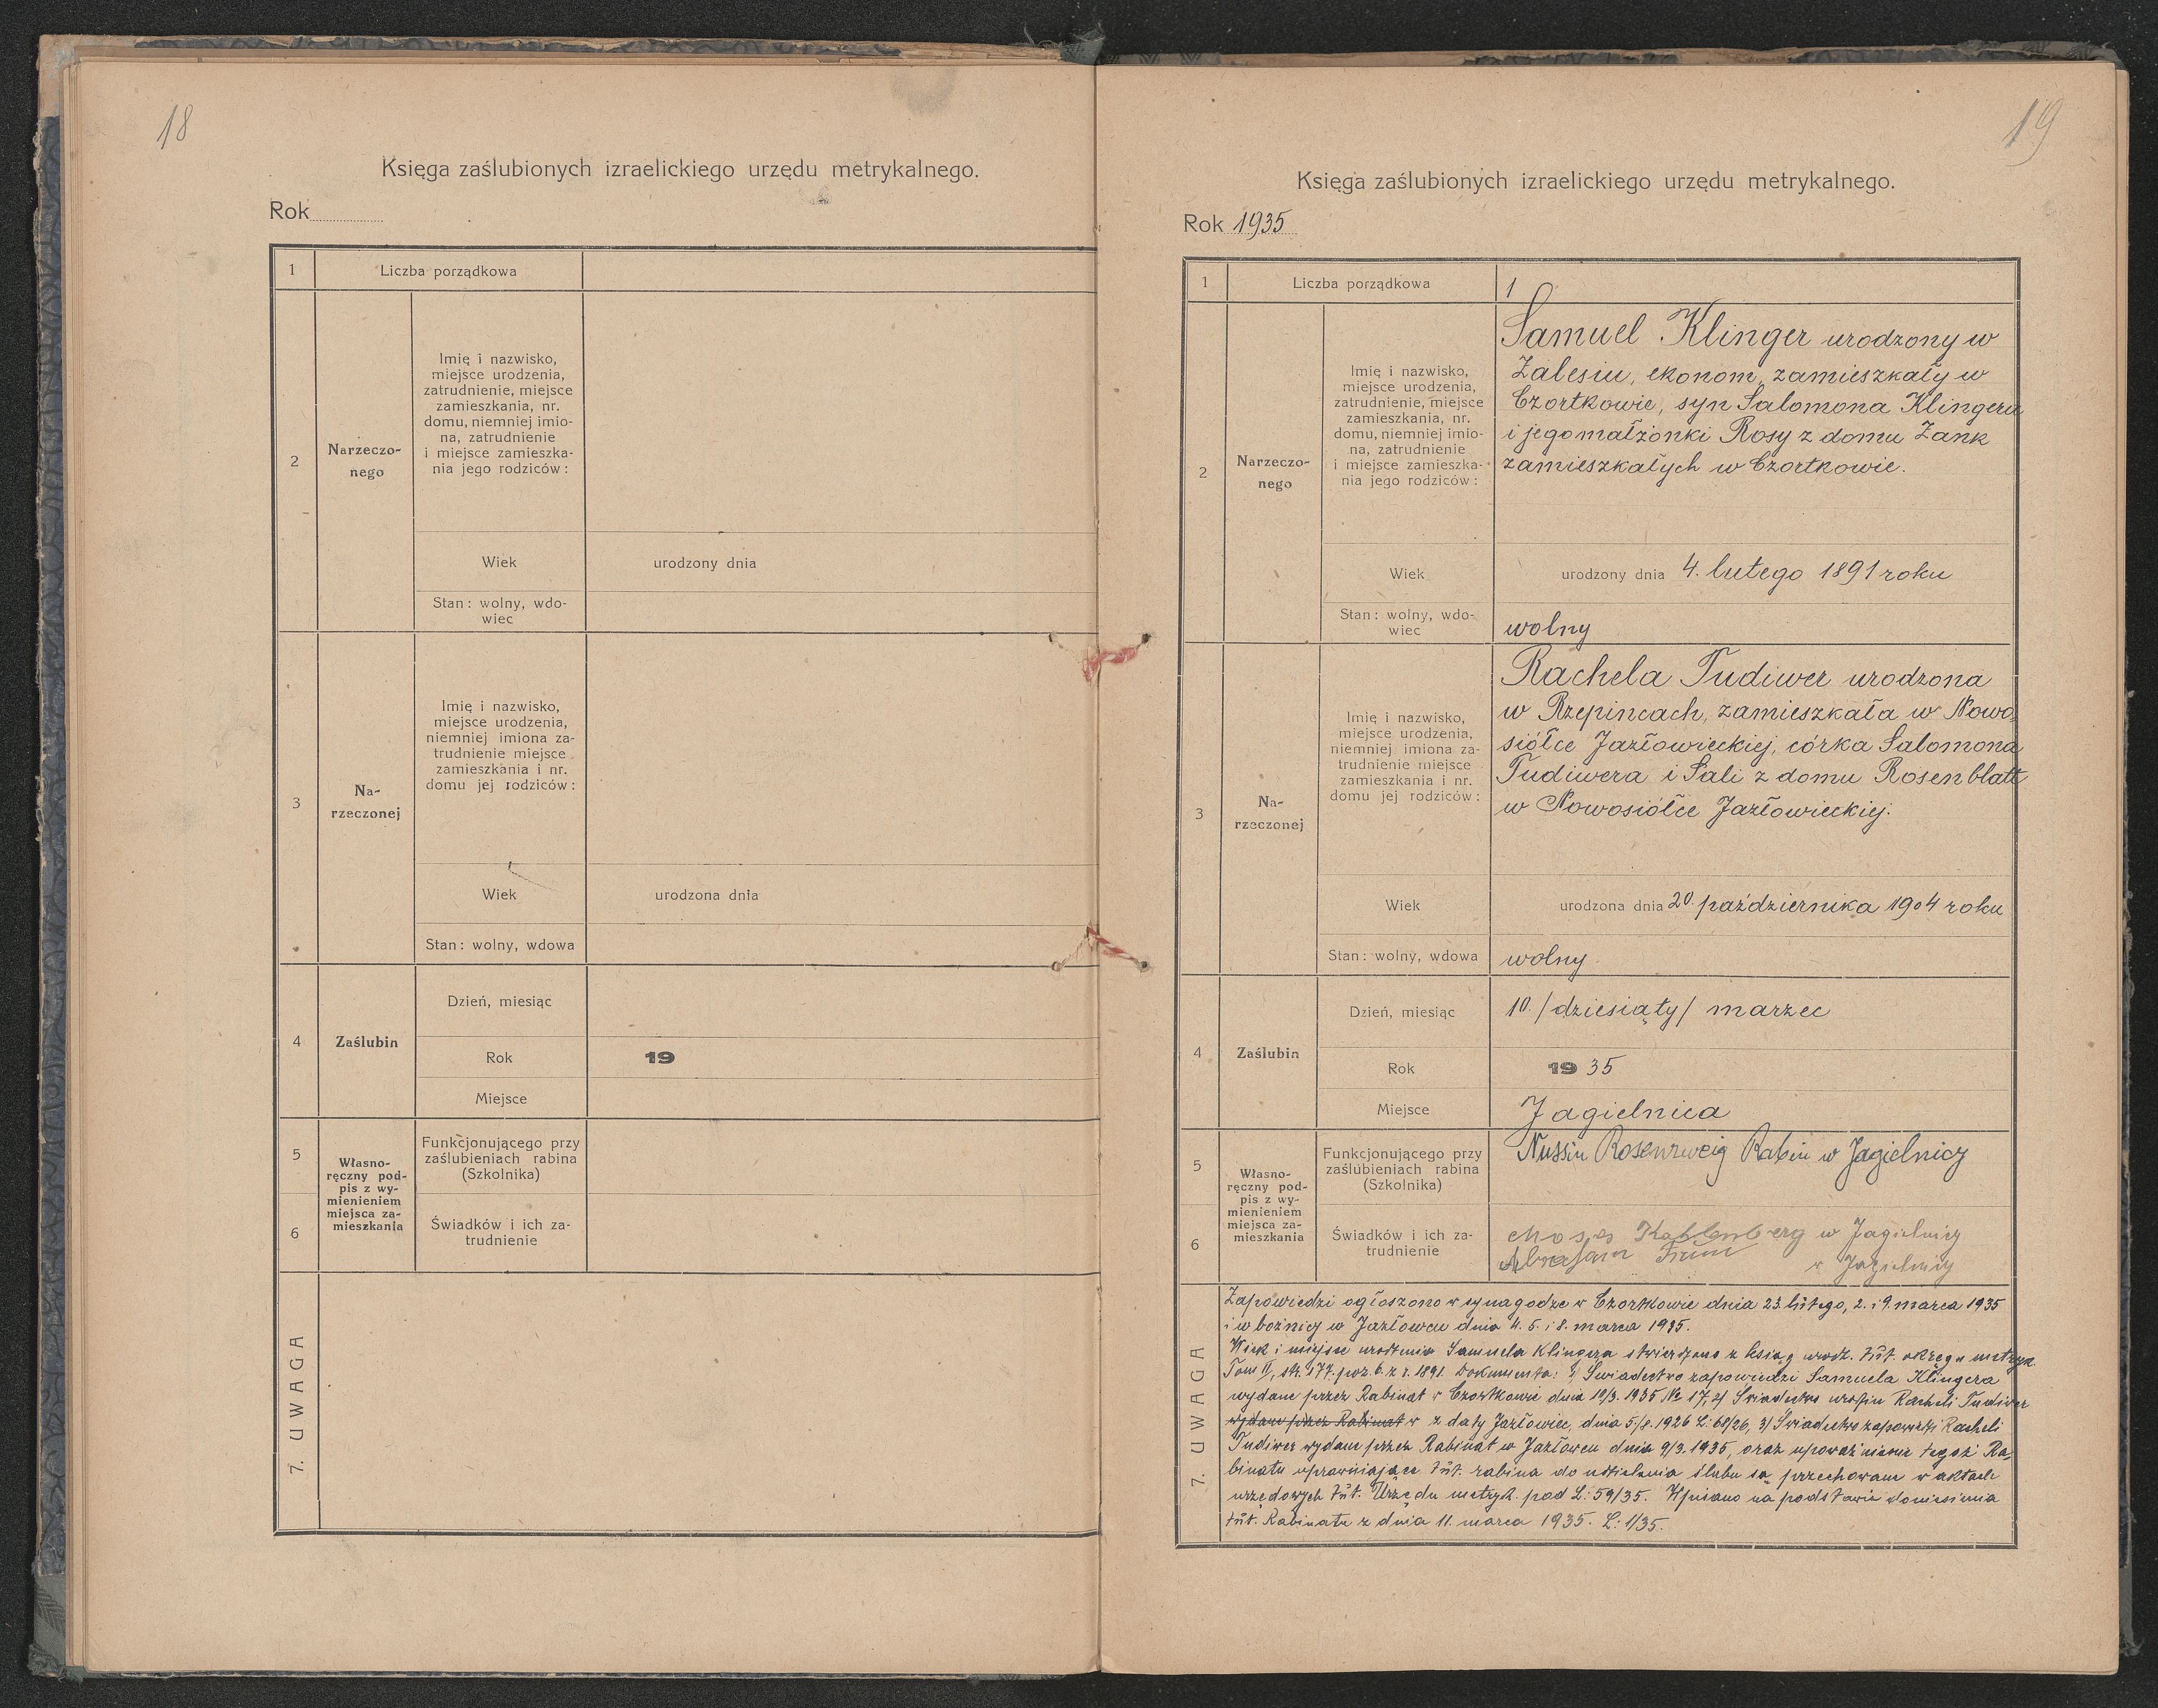 18
Księga zaślubionych izraelickiego urzędu metrykalnego.
Rok
1
Liczba porządkowa
2
Narzeczo-
nego
Imię i nazwisko,
miejsce urodzenia,
zatrudnienie, miejsce
zamieszkania, nr.
domu, niemniej imio-
na, zatrudnienie
i miejsce zamieszka-
nia jego rodziców:
Wiek
urodzony dnia
Stan: wolny, wdo-
wiec
3
Na-
rzeczonej
Imię i nazwisko,
miejsce urodzenia,
niemniej imiona za-
trudnienie miejsce
zamieszkania i nr.
domu jej rodziców:
Wiek
urodzona dnia
Stan: wolny, wdowa
4
Zaślubin
Dzień, miesiąc
Rok
19
Miejsce
5
6
Własno-
ręczny pod-
pis z wy-
mienieniem
miejsca za-
mieszkania
Funkcjonującego przy
zaślubieniach rabina
(Szkolnika)
Świadków i ich za-
trudnienie
7. UWAGA
19
Księga zaślubionych izraelickiego urzędu metrykalnego.
Rok 1935
1
Liczba porządkowa
1
2
Narzeczo-
nego
Imię i nazwisko,
miejsce urodzenia,
zatrudnienie, miejsce
zamieszkania, nr.
domu, niemniej imio-
na, zatrudnienie
i miejsce zamieszka-
nia jego rodziców:
Samuel Klinger urodzony w
Zalesiu, ekonom, zamieszkały w
Czortkowie, syn Salomona Klingera
i jego małżonki Rosy z domu Zank
zamieszkałych w Czortkowie.
Wiek
urodzony dnia 4. lutego 1891 roku
Stan: wolny, wdo-
wiec
wolny
3
Na-
rzeczonej
Imię i nazwisko,
miejsce urodzenia,
niemniej imiona za-
trudnienie miejsce
zamieszkania i nr.
domu jej rodziców:
Rachela Tudiwer urodzona
w Rzepincach, zamieszkała w Nowo-
siółce Jazłowieckiej, córka Salomona
Tudiwera i Sali z domu Rosenblatt
w Nowosiółce Jazłowieckiej.
Wiek
urodzona dnia 20. października 1904 roku
Stan: wolny, wdowa
wolny
4
Zaślubin
Dzień, miesiąc
10. /dziesiąty/ marzec
Rok
19 35
Miejsce
Jagielnica
5
6
Własno-
ręczny pod-
pis z wy-
mienieniem
miejsca za-
mieszkania
Funkcjonującego przy
zaślubieniach rabina
(Szkolnika)
Nussin Rosenzweig Rabin w Jagielnicy
Świadków i ich za-
trudnienie
Moses w Jagielnicy
Abraham w Jagielnicy
7. UWAGA
Zapowiedzi ogłoszono w synagodze w Czortkowie dnia 23. lutego, 2. i 9. marca 1935
i w bożnicy w Jazłowcu dnia 4. 5. i 8. marca 1935.
Wiek i miejsce urodzenia Samuela Klingera stwierdzono z ksiąg urodz. tut. okręgu metryk.
Tom II, str. 177. poz. 6. z r. 1891. Dokumenta: 1/ Świadectwo zapowiedzi Samuela Klingera
wydane przez Rabinat w Czortkowie dnia 10/3. 1935 № 17, 2/ Świadectwo urodzin Racheli Tudiwer
wydane przez Rabinat w z daty Jazłowiec, dnia 5/8. 1926 L: 68/26, 3/ Świadectwo zapowiedzi Racheli
Tudiwer wydane przez Rabinat w Jazłowcu dnia 9/3. 1935, oraz upoważnienie tegoż Ra-
binatu uprawniające tut. rabina do udzielenia ślubu są przechowane w aktach
urzędowych tut. Urzędu metryk. pod L: 59/35. Wpisano na podstawie doniesienia
tut. Rabinatu z dnia 11. marca 1935. L: 1/35.